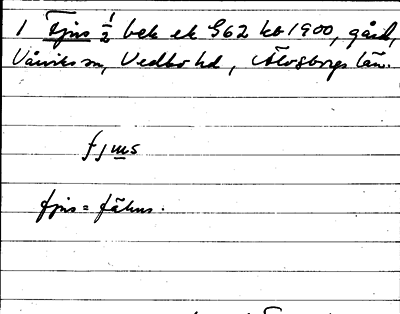 1 Fjus 1/2 bek ek G62 kb 1900, gård,
Vårviks sn, Vedbo hd, Älvsborgs län.
fjus
fjus = fähus.